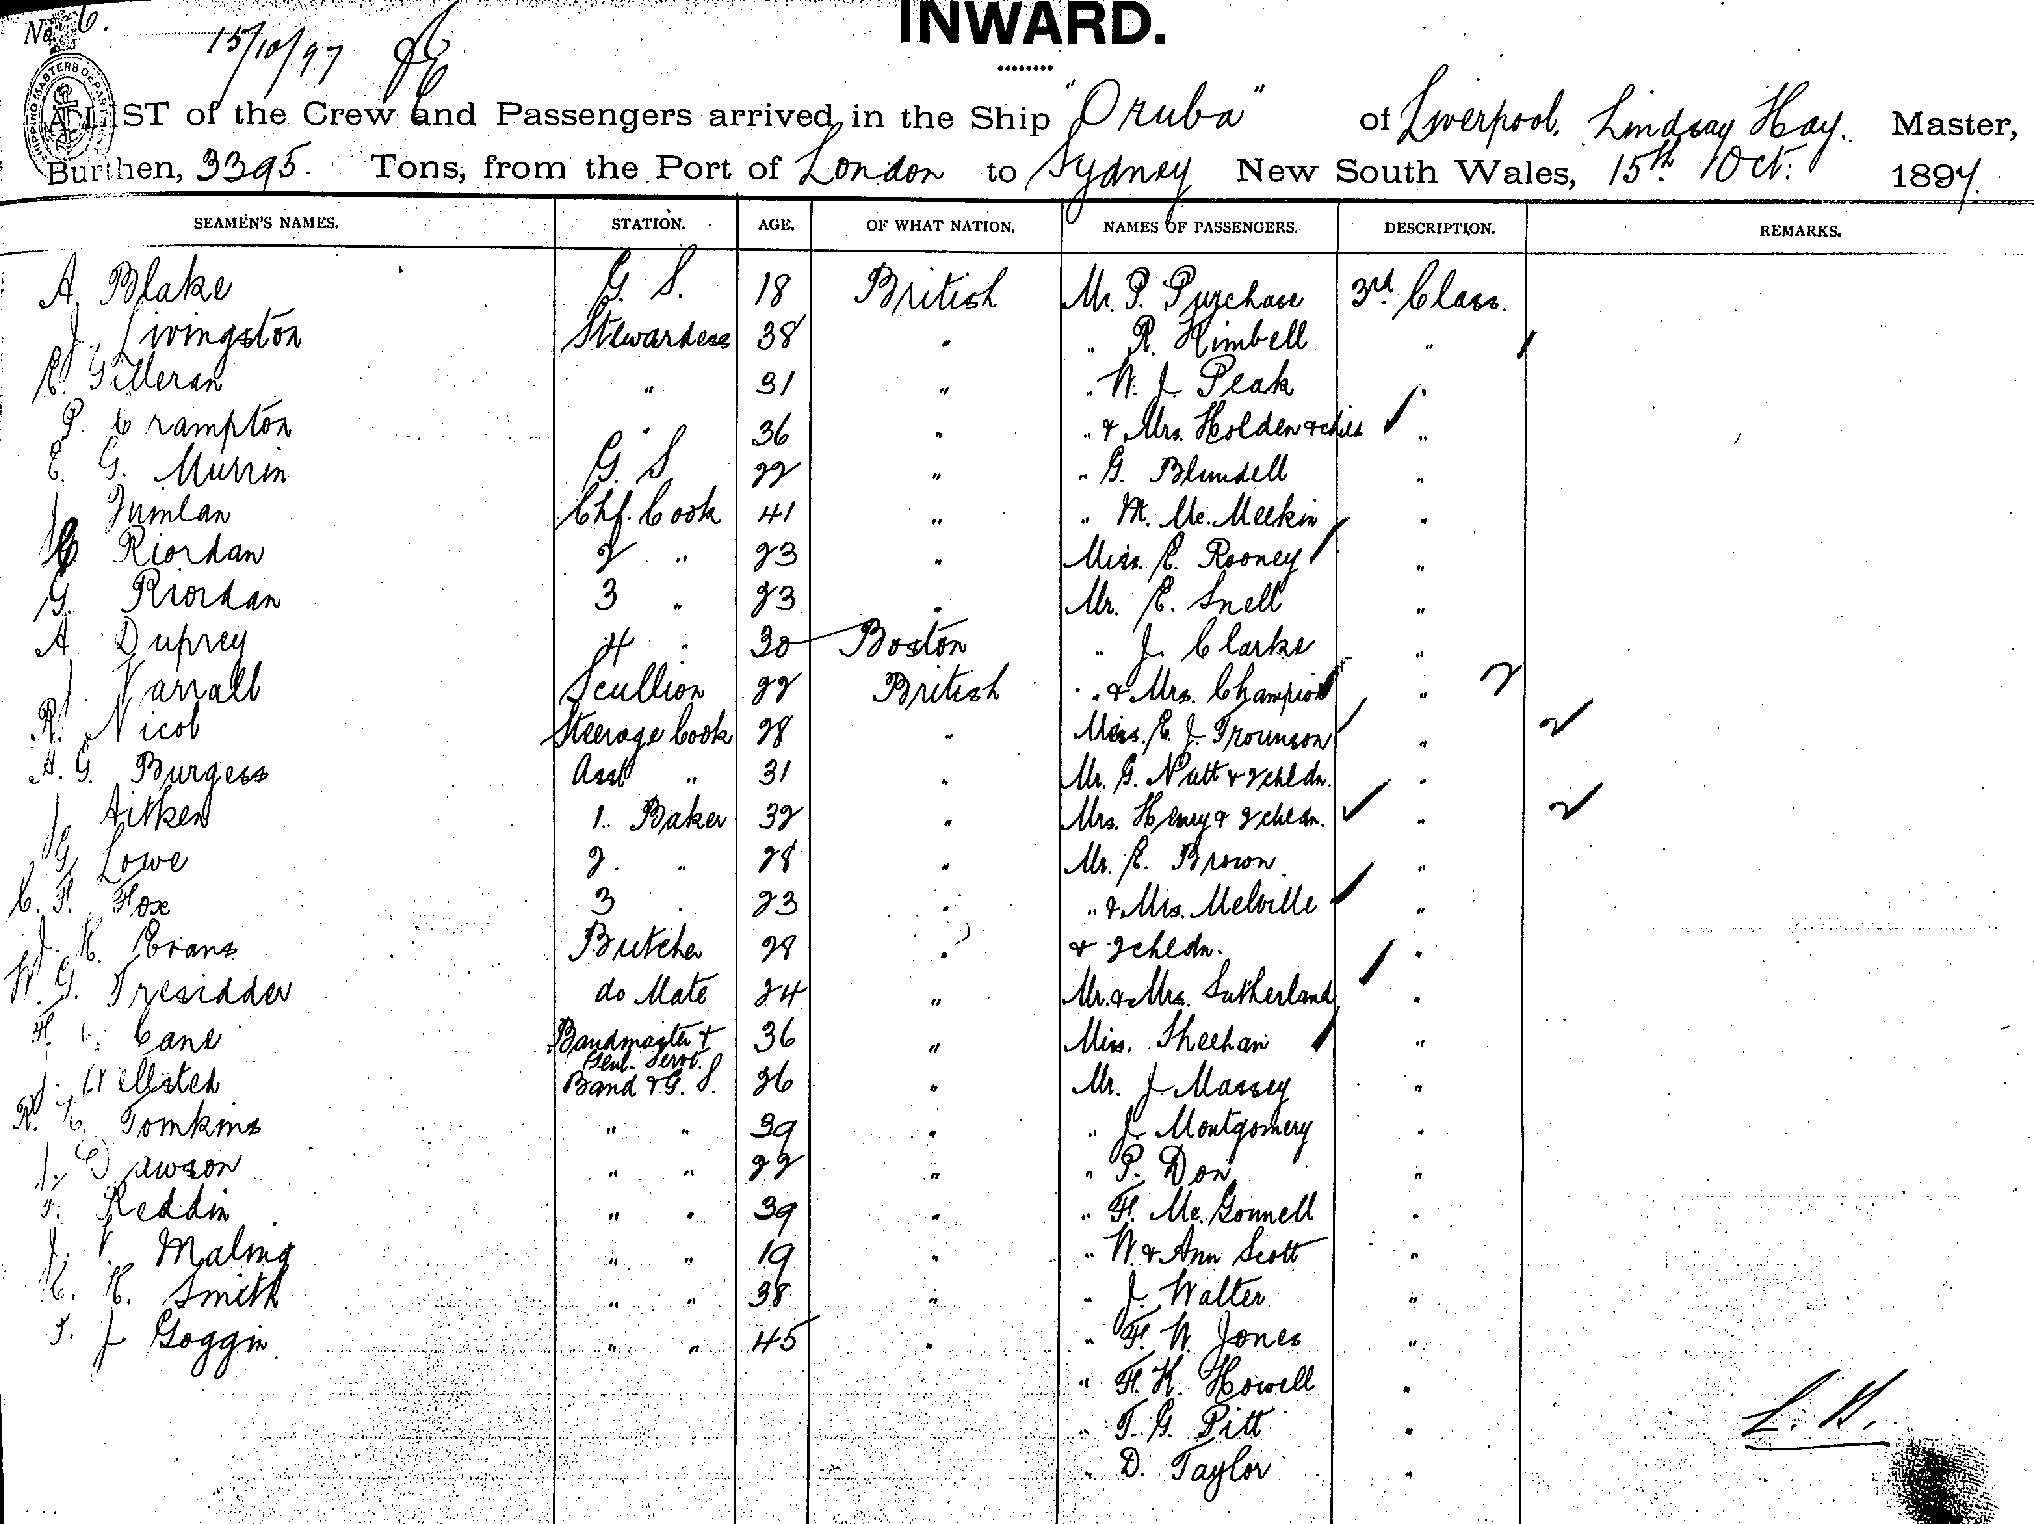 No. 6.
INWARD.
15/10/97
A LIST of the Crew and Passengers arrived in the Ship "Oruba" of Liverpool, Lindsay Hay. Master,
Burthen, 3395. Tons, from the Port of London to Sydney New South Wales, 15th Oct: 1897.
SEAMEN'S NAMES. STATION. AGE. OF WHAT NATION. NAMES OF PASSENGERS. DESCRIPTION. REMARKS.
A. Blake G. S. 18 British Mr. P. Purchase 3rd Class.
J. Livingston Stewardess 38 " " R. Kimbell "
E. Gilleran " 31 " " W. J. Peak "
P. Crampton " 36 " " & Mrs. Holden & child "
E. G. Murrin G. S 22 " " G. Blundell "
J. Chf. Cook 41 " " M. Mc. Meekin "
C Riordan 2 " 23 " Miss. E. Rooney "
G. Riordan 3 " 23 " Mr. E. Snell "
A Duprey 4 " 30 Boston " J. Clarke "
J. Varrall Scullion 22 British " & Mrs. Champion "
R. Nicol Steerage Cook 28 " Miss. E. J. Trounson "
A. G. Burgess Asst " 31 " Mr. G. Nutt & 2 chldn. "
J Aitken 1. Baker 32 " Mrs. Henry & 2 chldn. "
G. Lowe 2. " 28 " Mr. E. Brown. "
C. F. Fox 3 " 23 " " & Mrs. Melville "
J. H. Evans Butcher 28 " & 2 chldn. "
W. G. Tresidder do Mate 24 " Mr. & Mrs. Sutherland "
F. C. Cane Bandmaster & Genl. Servt. 36 " Miss. Sheehan "
J. Wellsted Band & G. S. 26 " Mr. J Massey "
R. Tomkins " " 39 " " J. Montgomery "
J. Dawson " " 22 " " P. Don "
T. Reddin " " 39 " " F. Mc. Gonnell "
J. V. Maling " " 19 " " W. & Ann Scott "
C. H. Smith " " 38 " " J. Walter "
T. J Goggin " " 45 " " F. W. Jones "
" F. H. Howell "
" T. G. Pitt "
" D. Taylor "
L. H.